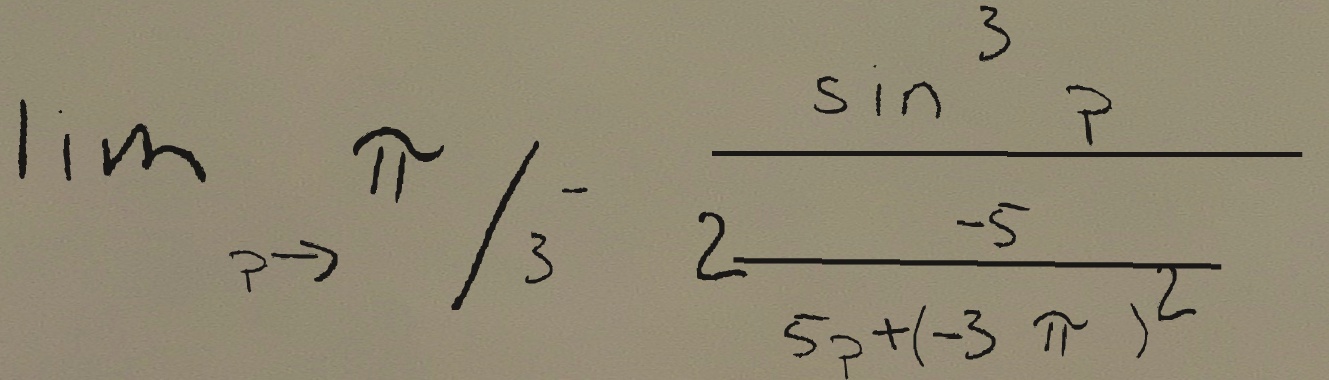 \lim_{p \to \pi/3^-} \frac{\sin^3 p}{2 \frac{-5}{5p + (-3\pi)^2}}